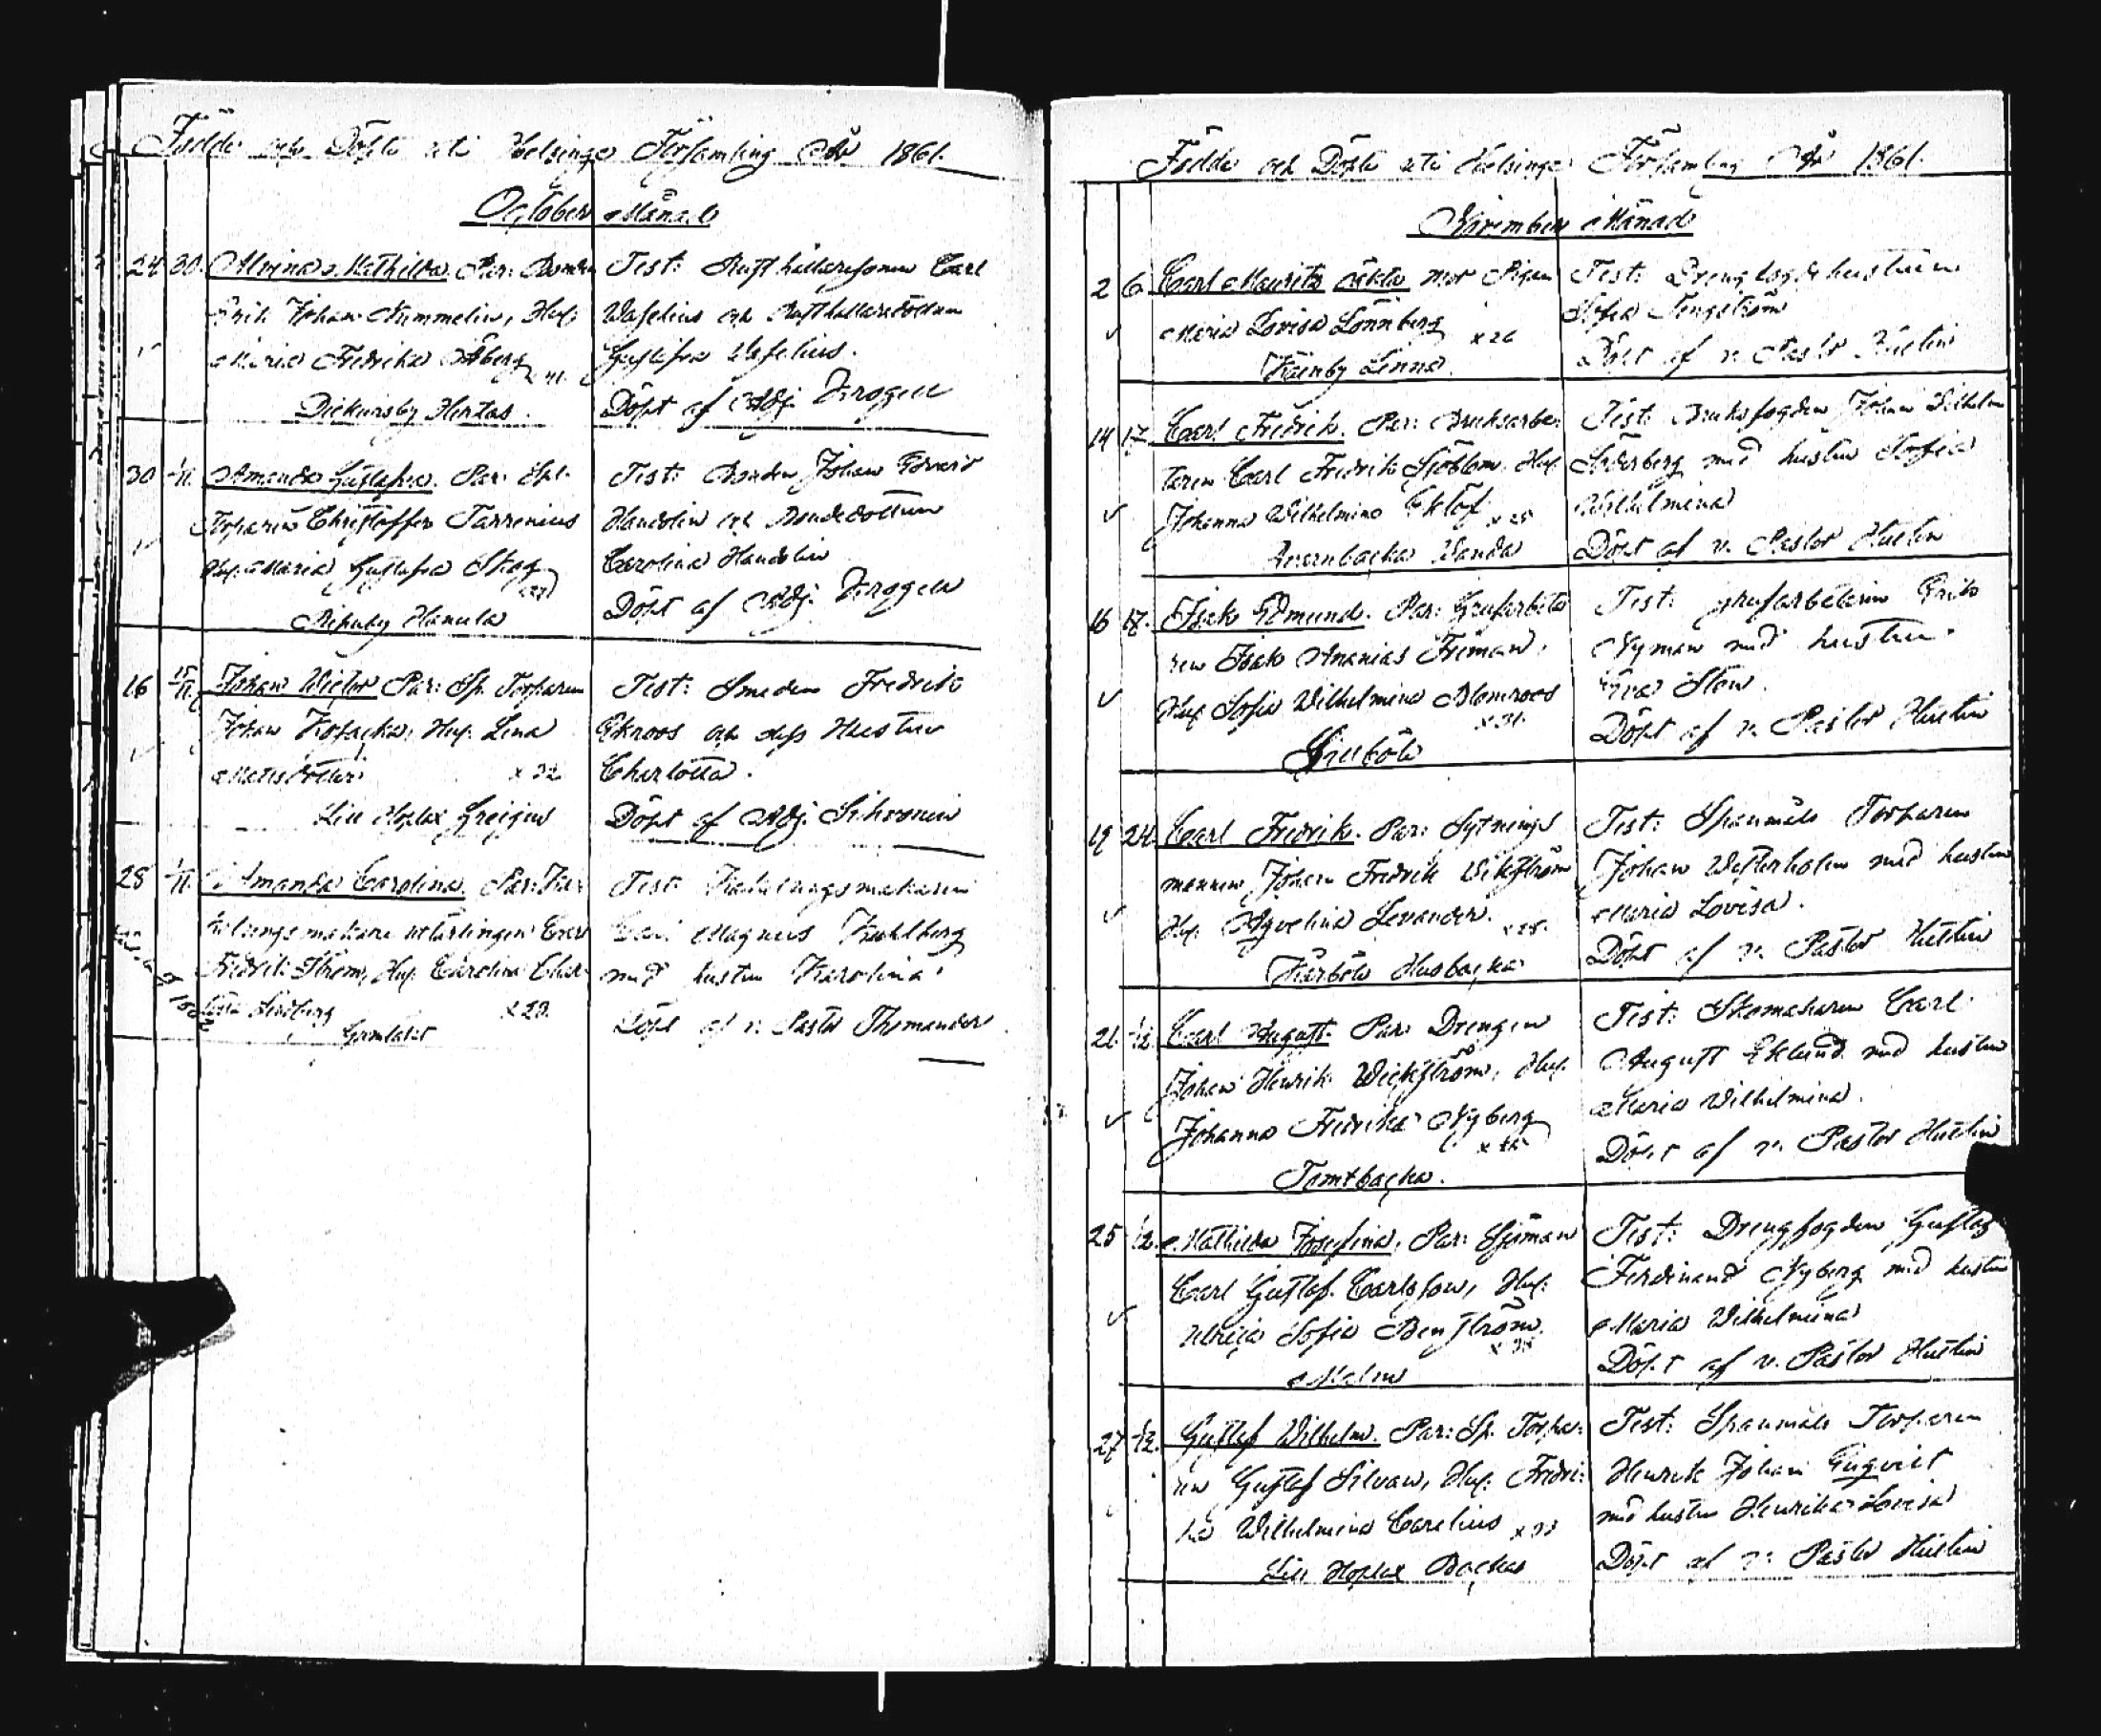 Födde och Döpte uti Helsinge Församling År 1861.
October Månad
24 30. Alvina Mathilda. Par: Bonden
Erik Johan Nummelin, Hust:
Maria Fredrika Åberg
Dickursby Hertas.
Test: Rusthållaresonen Carl
Wafelius och Rusthållaredottren
Gustafva Wafelius.
Döpt af Adj. Krogell
30 1/11. Amanda Gustafva. Par: Sp.
Torparen Christoffer Tarrenius
Hust. Maria Gustafva Skog
Ripuby Hanula
Test: Bonden Johan Edvard
Handolin och Bondedottren
Carolina Handolin
Döpt af Adj. Krogell
16 15/11. Johan Victor Par: Sp. Torparen
Johan Kosacka, Hust. Lena
Matsdotter x 32
Lill Hoplax Greijus
Test: Smeden Fredrik
Ekroos och dess Hustru
Charlotta.
Döpt af Adj. Sihvonen
28 1/11. Amanda Carolina. Par: Kar
Fredrik Ström, Hust. Carolina Char
lotta Lindberg x 23.
Gamlakt
Test:
Carl Magnus Kuhlberg
med hustru Karolina
Döpt af v. Pastor Thomander
Födde och Döpte uti Helsinge Församling År 1861.
November Månad
2 6. Carl Mauritz oäkta Mor Pigan
Maria Lovisa Lönnberg x 26
Kårnby Linna.
Test: Drengfogdehustrun
Sofia Tengström
Döpt af v. Pastor Hutlin
14 17. Carl Fredrik. Par: Bruksarbe-
taren Carl Fredrik Sjöblom, Hust.
Johanna Wilhelmina Eklöf x 25
Qvarnbacka Vanda
Test: Bruksfogden Johan Wilhelm
Söderberg med hustru Sofia
Wilhelmina
Döpt af v. Pastor Hutlin
16 17. Isak Edmund. Par: Grufarbeta
ren Isak Ananias Friman,
Hust. Sofia Wilhelmina Blomroos
x 31.
Test: grufarbetaren Erik
Nyman med hustru
Eva Sten.
Döpt af v. Pastor Hutlin
19 24. Carl Fredrik. Par: Sytnings
mannen Johan Fredrik Wikström
Hust. Agvelina Levander. x 25.
Kårböle Husbacka
Test: Spanmåls Torparen
Johan Westerholm med hustru
Maria Lovisa.
Döpt af v. Pastor Hutlin
21. 1/12. Carl August. Par: Drengen
Johan Henrik Wickström, Hust.
Johanna Fredrika Nyberg
Tomtbacka.
Test: Skomakaren Carl
August Eklund med hustru
Maria Wilhelmina.
Döpt af v. Pastor Hutlin
25 1/12. Mathilda Josefina, Par: Sjöman
Carl Gustaf Carlsson, Hust.
Ulrica Sofia Bengström
Malm
Test: Drengfogden Gustaf
Ferdinand Nyberg med hustru
Maria Wilhelmina
Döpt af v. Pastor Hutlin
27 1/12. Gustaf Wilhelm. Par: Sp. Torpa-
ren Gustaf Silvan, Hust. Fredri-
ka Wilhelmina Carelius x 33
Lill Hoplax Backas
Test: Spanmåls Torparen
Henrik Johan Engqvist
med hustru Henrika Lovisa
Döpt af v. Pastor Hutlin